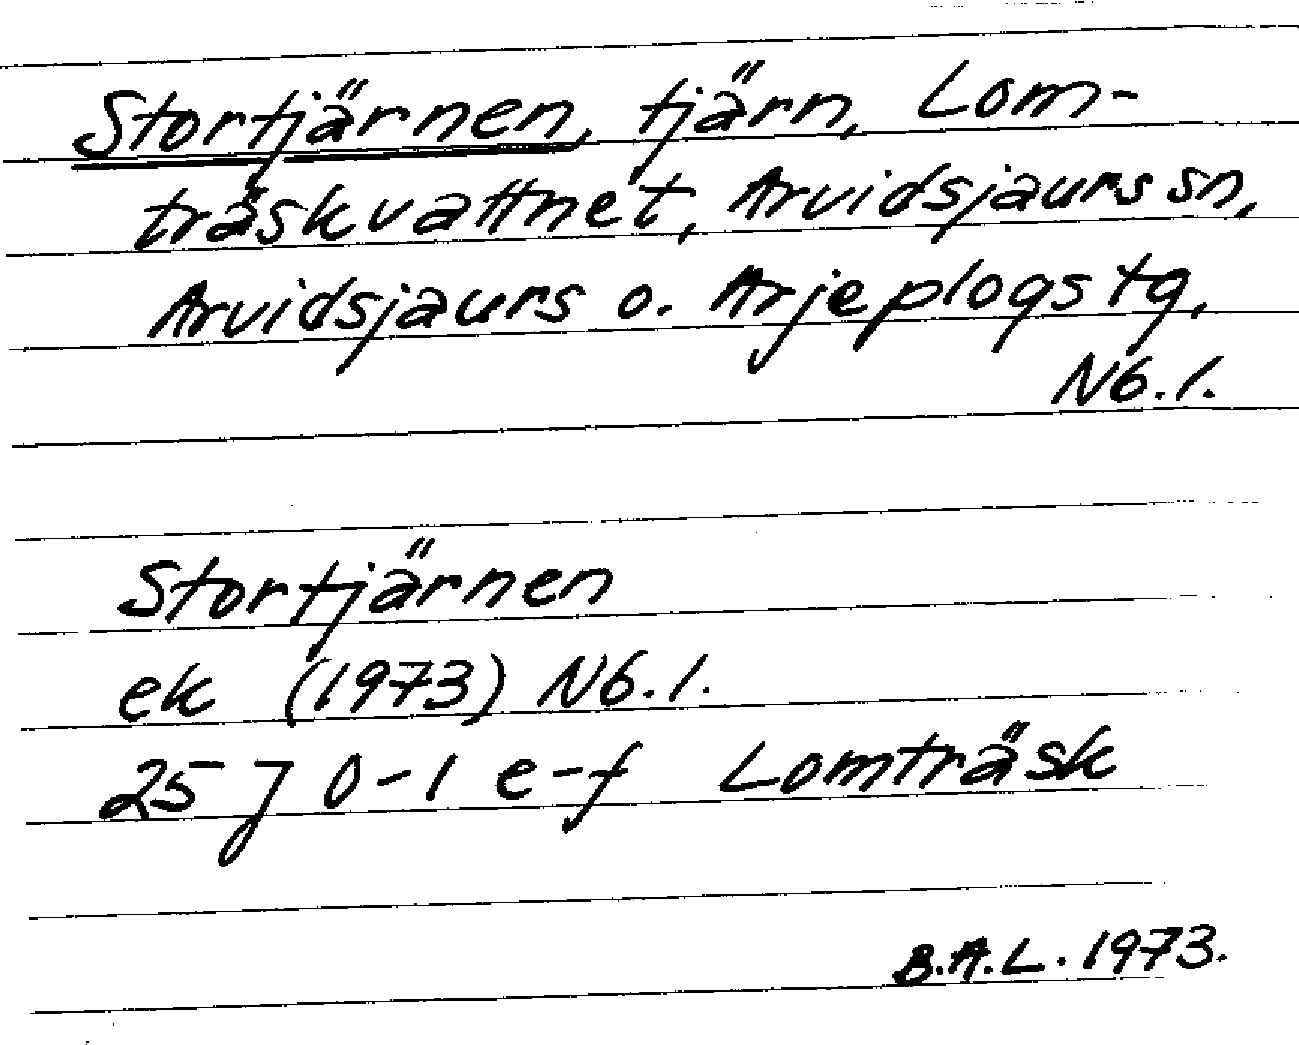 Stortjärnen, tjärn, Lom-
träskvattnet, Arvidsjaurs sn,
Arvidsjaurs o. Arjeplogs tg,
Nb.l.
Stortjärnen
ek (1973) Nb.l.
25 J 0-1 e-f Lomträsk
B.A.L. 1973.